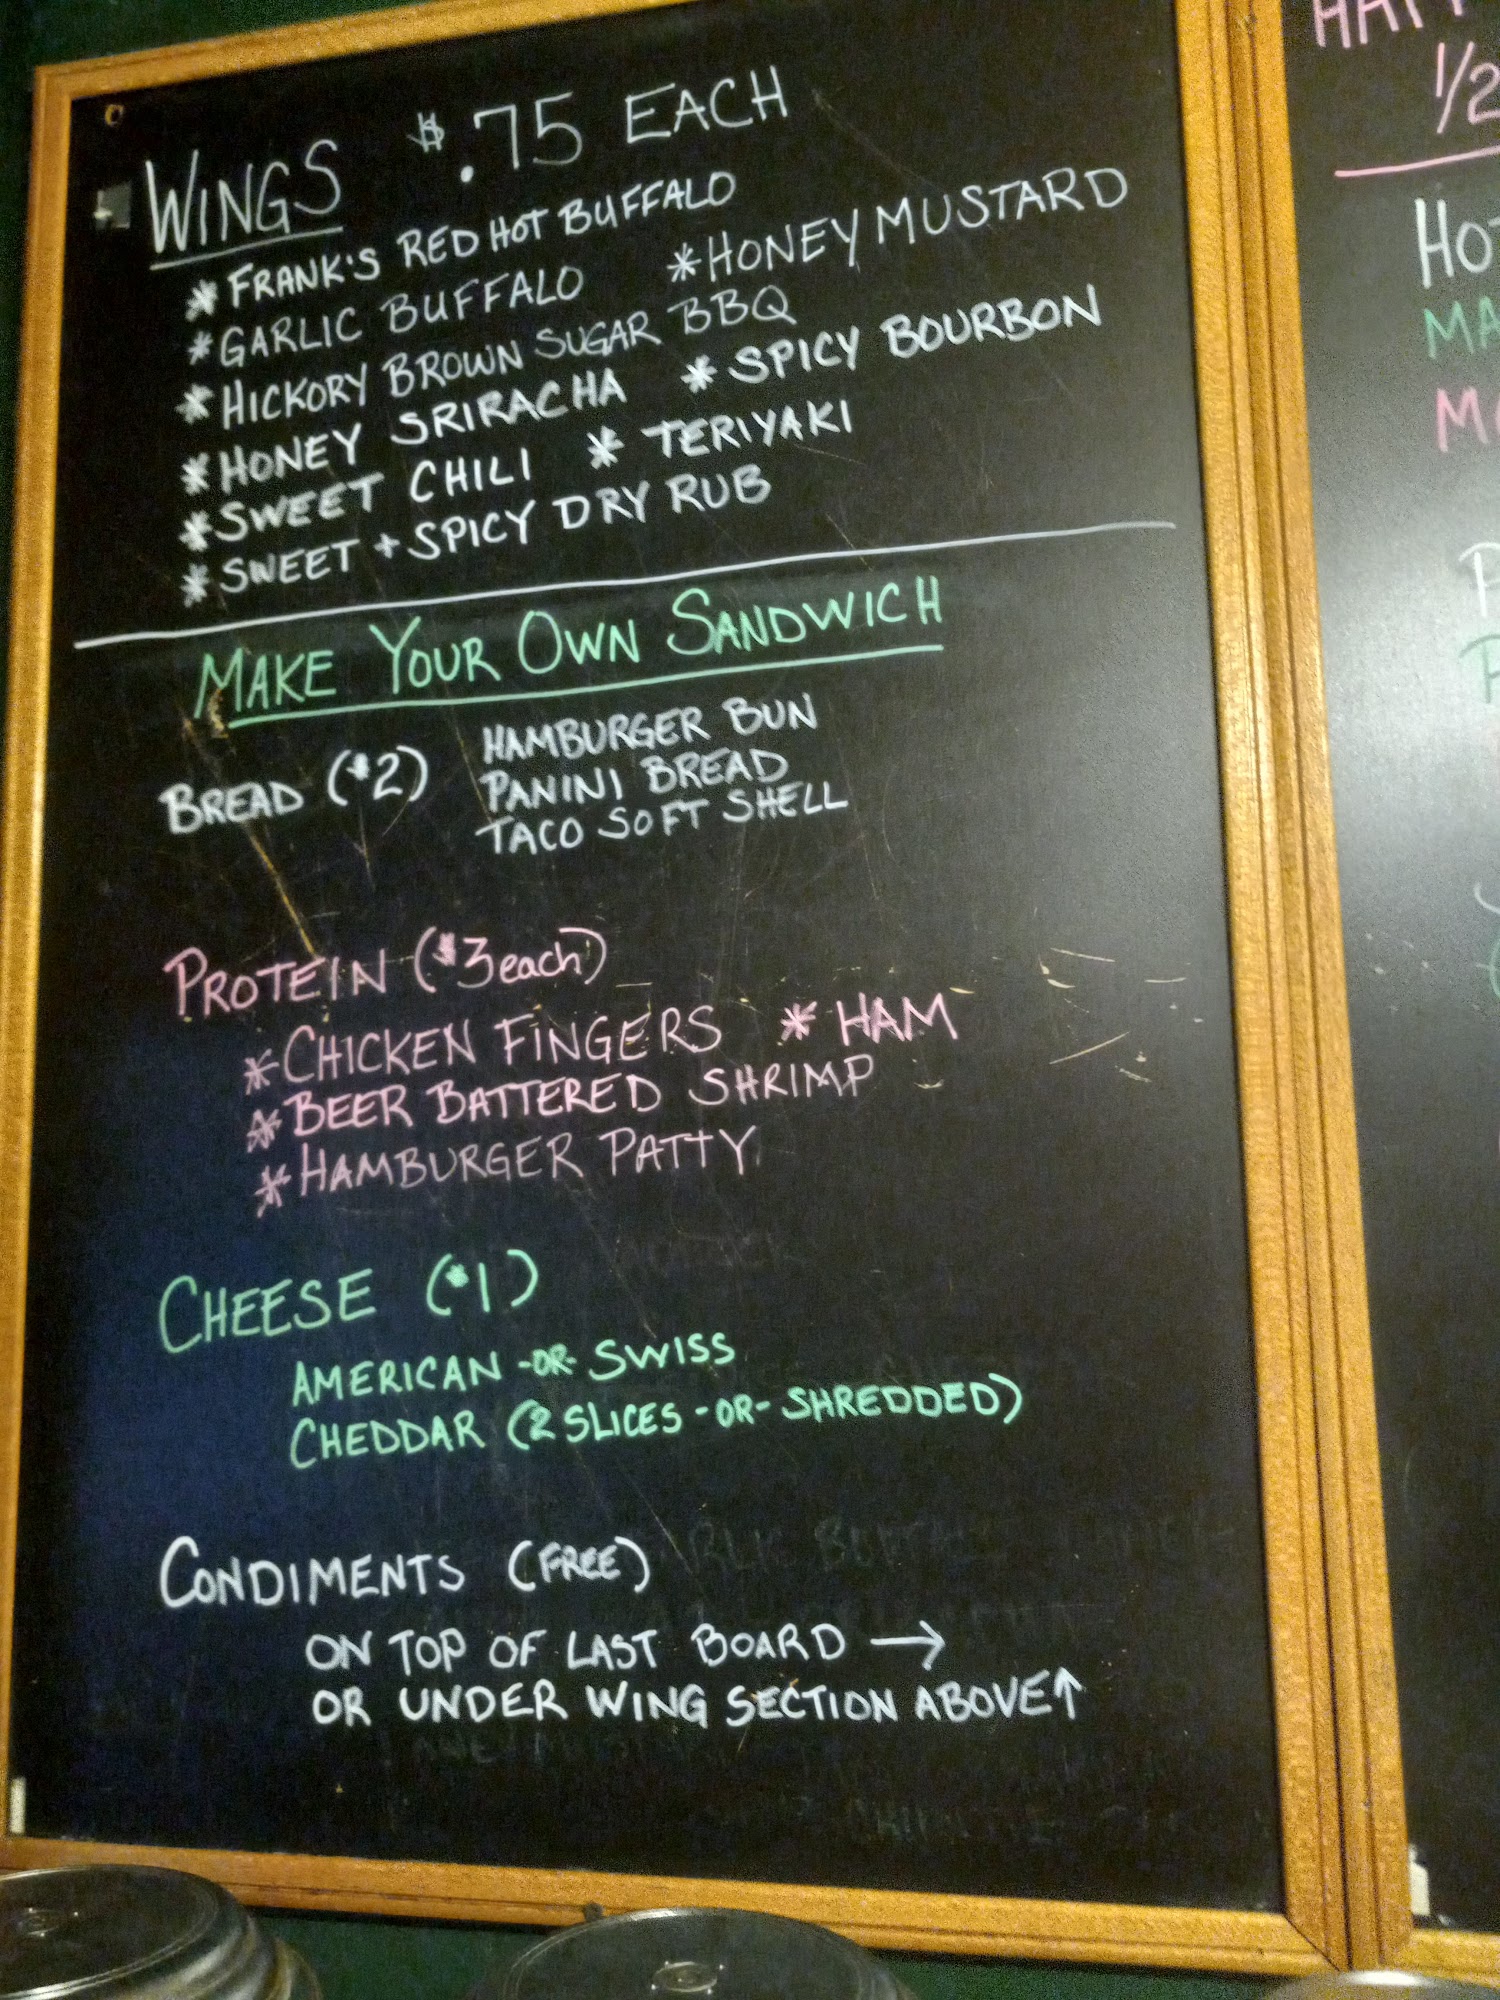 WINGS $.75 EACH
* FRANK'S RED HOT BUFFALO
* GARLIC BUFFALO * HONEY MUSTARD
* HICKORY BROWN SUGAR BBQ
* HONEY SRIRACHA * SPICY BOURBON
* SWEET CHILI * TERIYAKI
* SWEET + SPICY DRY RUB
MAKE YOUR OWN SANDWICH
BREAD ($2) HAMBURGER BUN
PANINI BREAD
TACO SOFT SHELL
PROTEIN ($3 each)
* CHICKEN FINGERS * HAM
* BEER BATTERED SHRIMP
* HAMBURGER PATTY
CHEESE ($1)
AMERICAN -OR- SWISS
CHEDDAR (2 SLICES -OR- SHREDDED)
CONDIMENTS (FREE)
ON TOP OF LAST BOARD →
OR UNDER WING SECTION ABOVE ↑
1/2